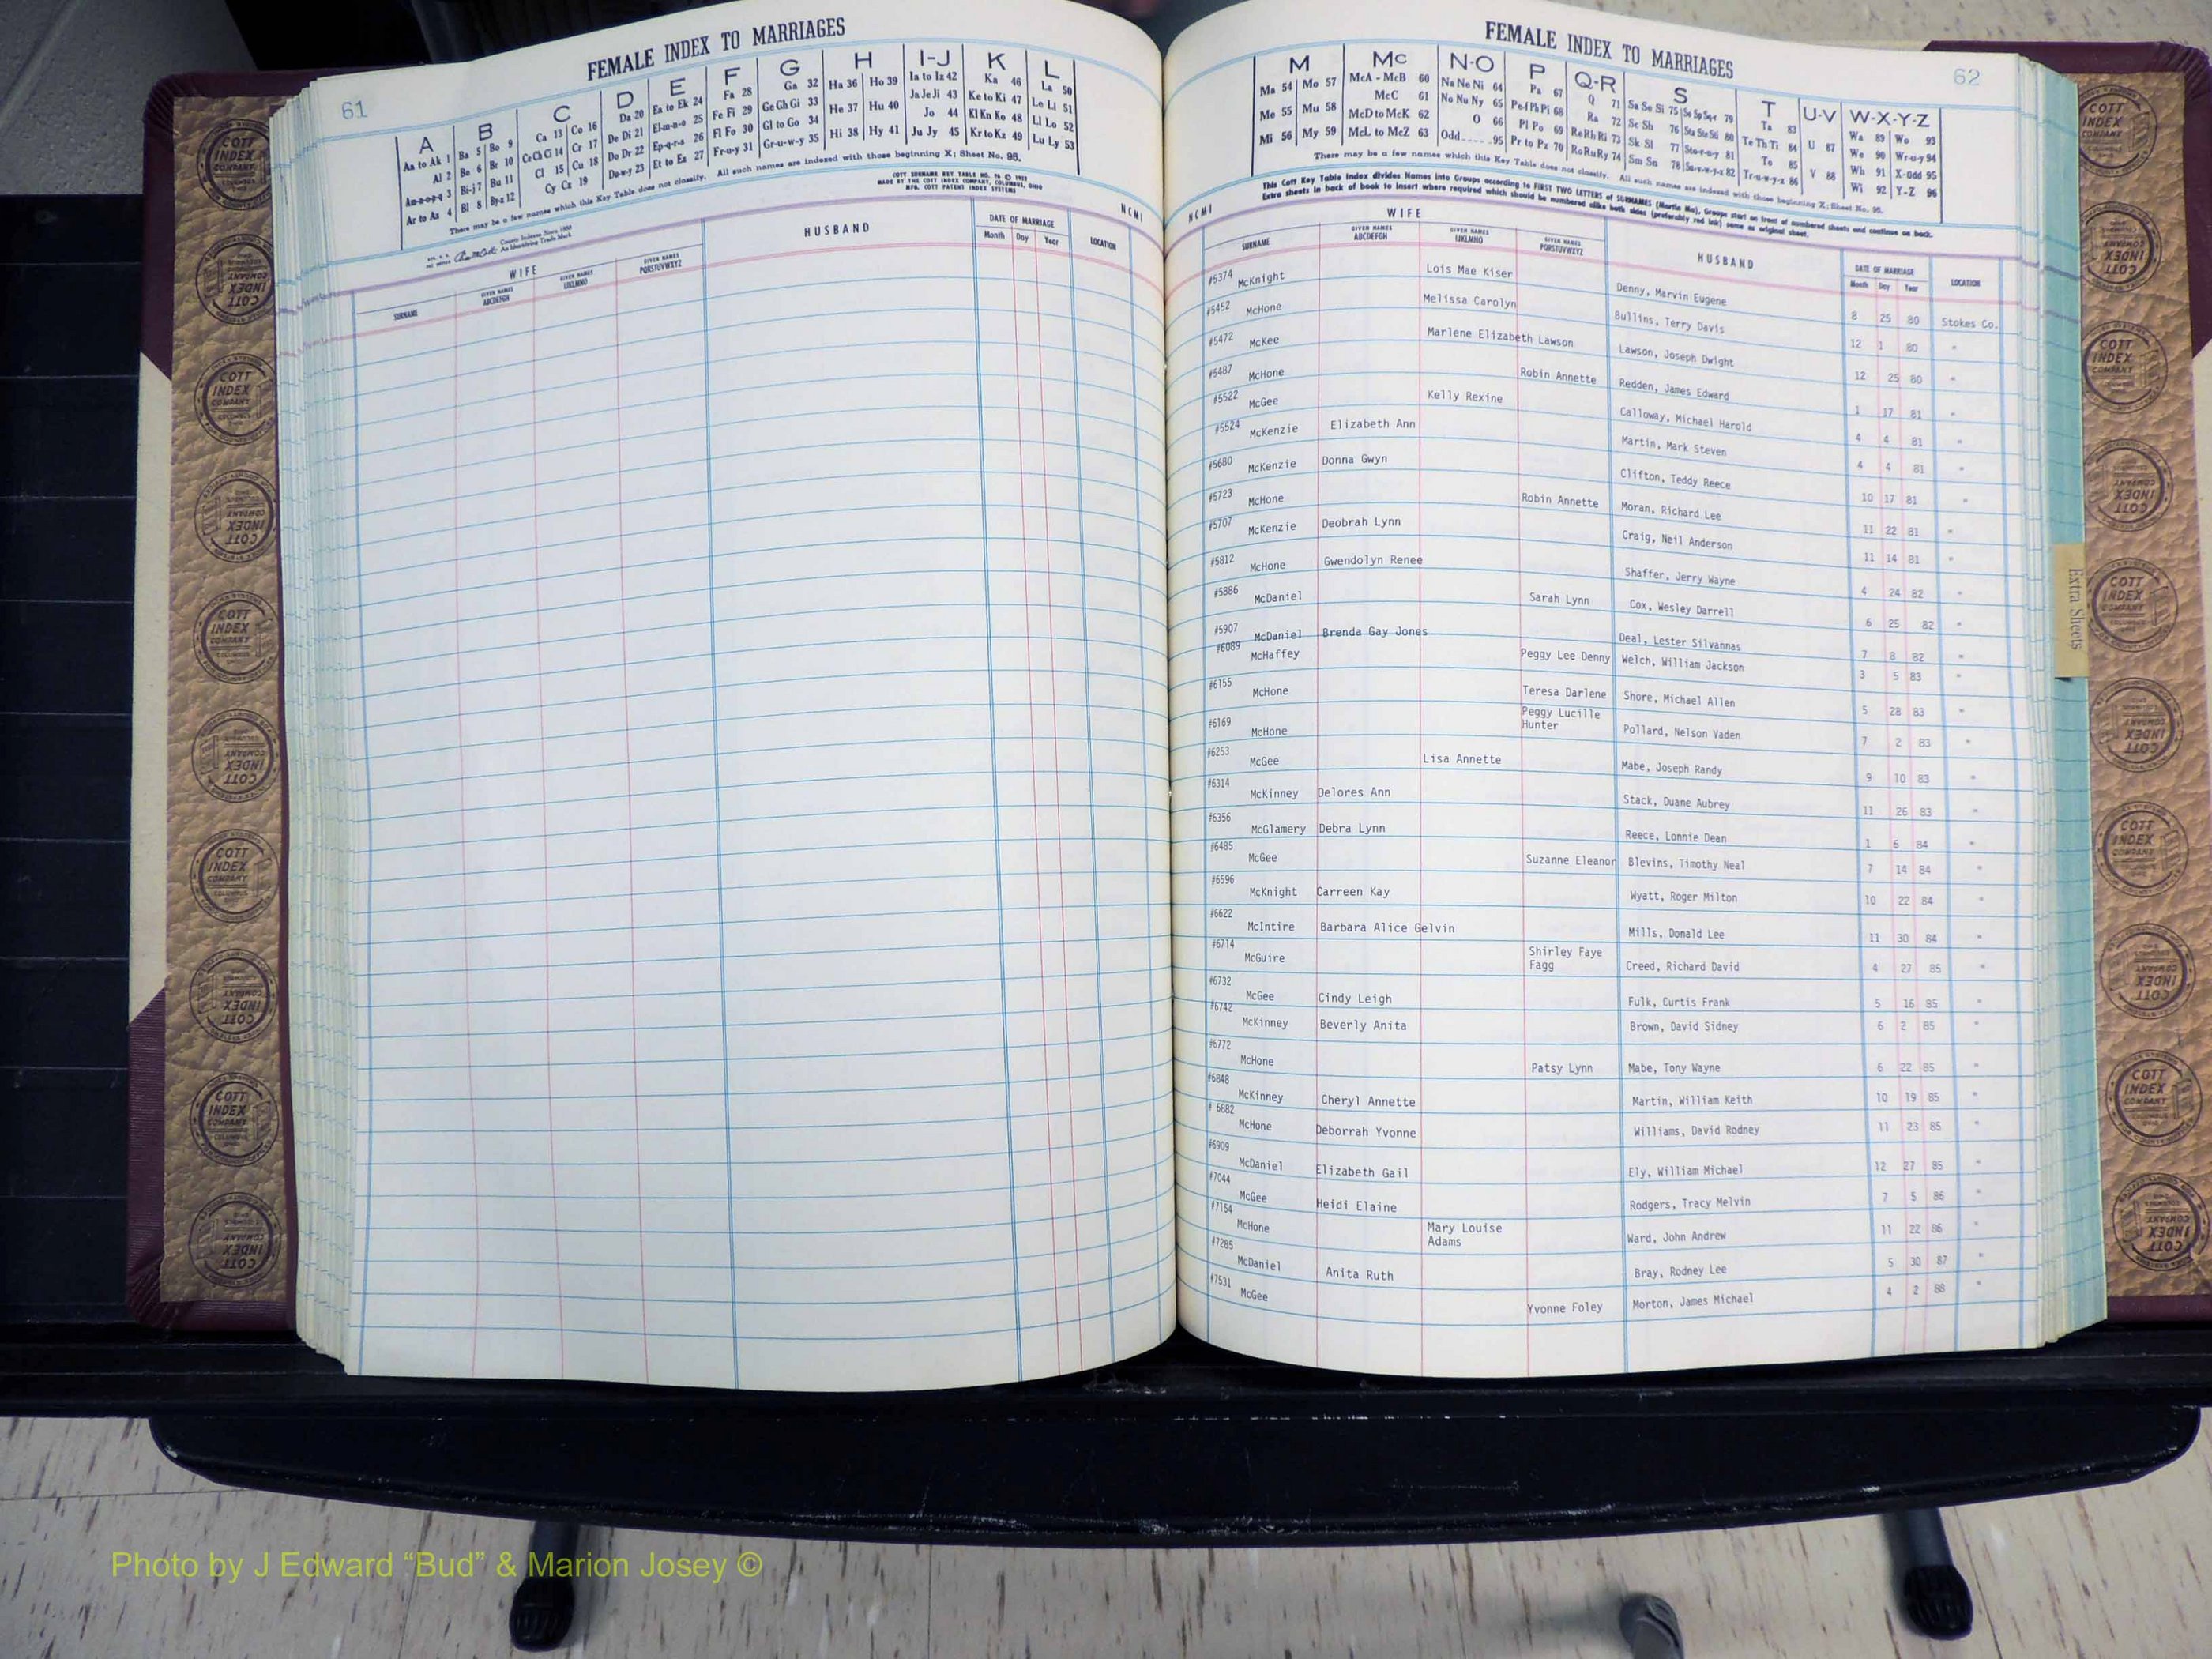 61
FEMALE INDEX TO MARRIAGES
A B C D E F G H I-J K L
Aa to Ak 1 Ba 5 Bo 9 Ca 13 Co 16 Da 20 Ea to Ek 24 Fa 28 Ga 32 Ha 36 Ho 39 Ia to Iz 42 Ka 46 La 50
Al 2 Be 6 Br 10 Ce Ch Ci 14 Cr 17 De Di 21 El-m-n-o 25 Fe Fi 29 Ge Gh Gi 33 He 37 Hu 40 Ja Je Ji 43 Ke to Ki 47 Le Li 51
An-o-p-q 3 Bi-j 7 Bu 11 Cl 15 Cu 18 Do Dr 22 Ep-q-r-s 26 Fl Fo 30 Gl to Go 34 Hi 38 Hy 41 Jo 44 Kl Kn Ko 48 Ll Lo 52
Ar to Az 4 Bl 8 By-z 12 Cy Cz 19 Du-w-y 23 Et to Ez 27 Fr-u-y 31 Gr-u-w-y 35 Ju Jy 45 Kr to Kz 49 Lu Ly 53
There may be a few names which this Key Table does not classify. All such names are indexed with those beginning X; Sheet No. 95.
COTT SURNAME KEY TABLE
MADE BY THE COTT INDEX COMPANY, COLUMBUS, OHIO
County Indexes Since 1888
An Identifying Trade Mark
NCMI
WIFE HUSBAND DATE OF MARRIAGE LOCATION
SURNAME GIVEN NAMES ABCDEFGH GIVEN NAMES IJKLMNO GIVEN NAMES PQRSTUVWXYZ Month Day Year
FEMALE INDEX TO MARRIAGES
62
M Mc N-O P Q-R S T U-V W-X-Y-Z
Ma 54 Mo 57 McA - McB 60 Na Ne Ni 64 Pa 67 Q 71 Sa Se Si 75 So Sp Sq-r 79 Ta 83 U 87 Wa 89 Wo 93
Me 55 Mu 58 McC 61 No Nu Ny 65 Pe-f Ph Pi 68 Ra 72 Sc Sh 76 Sta Ste Sti 80 Te Th Ti 84 V 88 We 90 Wr-u-y 94
Mi 56 My 59 McD to McK 62 O 66 Pl Po 69 Re Rh Ri 73 Sk Sl 77 Sto-r-u-y 81 To 85 Wh 91 X-Odd 95
McL to McZ 63 Odd 95 Pr to Pz 70 Ro Ru Ry 74 Sm Sn 78 Su-v-w-y-z 82 Tr-u-w-y-z 86 Wi 92 Y-Z 96
There may be a few names which this Key Table does not classify. All such names are indexed with those beginning X; Sheet No. 95.
This Cott Key Table Index divides Names into Groups according to FIRST TWO LETTERS of SURNAMES (Martin Ma). Groups start on front of numbered sheets and continue on back.
Extra sheets in back of book to insert where required which should be numbered alike both sides (preferably red ink) same as original sheet.
NCMI
WIFE HUSBAND DATE OF MARRIAGE LOCATION
SURNAME GIVEN NAMES ABCDEFGH GIVEN NAMES IJKLMNO GIVEN NAMES PQRSTUVWXYZ Month Day Year
#5374 McKnight Lois Mae Kiser Denny, Marvin Eugene 8 25 80 Stokes Co.
#5452 McHone Melissa Carolyn Bullins, Terry Davis 12 1 80 "
#5472 McKee Marlene Elizabeth Lawson Lawson, Joseph Dwight 12 25 80 "
#5487 McHone Robin Annette Redden, James Edward 1 17 81 "
#5522 McGee Kelly Rexine Calloway, Michael Harold 4 4 81 "
#5524 McKenzie Elizabeth Ann Martin, Mark Steven 4 4 81 "
#5680 McKenzie Donna Gwyn Clifton, Teddy Reece 10 17 81 "
#5723 McHone Robin Annette Moran, Richard Lee 11 22 81 "
#5707 McKenzie Deobrah Lynn Craig, Neil Anderson 11 14 81 "
#5812 McHone Gwendolyn Renee Shaffer, Jerry Wayne 4 24 82 "
#5886 McDaniel Sarah Lynn Cox, Wesley Darrell 6 25 82 "
#5907 McDaniel Brenda Gay Jones Deal, Lester Silvannas 7 8 82 "
#6089 McHaffey Peggy Lee Denny Welch, William Jackson 3 5 83 "
#6155 McHone Teresa Darlene Shore, Michael Allen 5 28 83 "
#6169 McHone Peggy Lucille Hunter Pollard, Nelson Vaden 7 2 83 "
#6253 McGee Lisa Annette Mabe, Joseph Randy 9 10 83 "
#6314 McKinney Delores Ann Stack, Duane Aubrey 11 26 83 "
#6356 McGlamery Debra Lynn Reece, Lonnie Dean 1 6 84 "
#6485 McGee Suzanne Eleanor Blevins, Timothy Neal 7 14 84 "
#6596 McKnight Carreen Kay Wyatt, Roger Milton 10 22 84 "
#6622 McIntire Barbara Alice Gelvin Mills, Donald Lee 11 30 84 "
#6714 McGuire Shirley Faye Fagg Creed, Richard David 4 27 85 "
#6732 McGee Cindy Leigh Fulk, Curtis Frank 5 16 85 "
#6742 McKinney Beverly Anita Brown, David Sidney 6 2 85 "
#6772 McHone Patsy Lynn Mabe, Tony Wayne 6 22 85 "
#6848 McKinney Cheryl Annette Martin, William Keith 10 19 85 "
# 6882 McHone Deborrah Yvonne Williams, David Rodney 11 23 85 "
#6909 McDaniel Elizabeth Gail Ely, William Michael 12 27 85 "
#7044 McGee Heidi Elaine Rodgers, Tracy Melvin 7 5 86 "
#7154 McHone Mary Louise Adams Ward, John Andrew 11 22 86 "
#7285 McDaniel Anita Ruth Bray, Rodney Lee 5 30 87 "
#7531 McGee Yvonne Foley Morton, James Michael 4 2 88 "
Extra Sheets
COTT INDEX COMPANY
Photo by J Edward “Bud” & Marion Josey ©